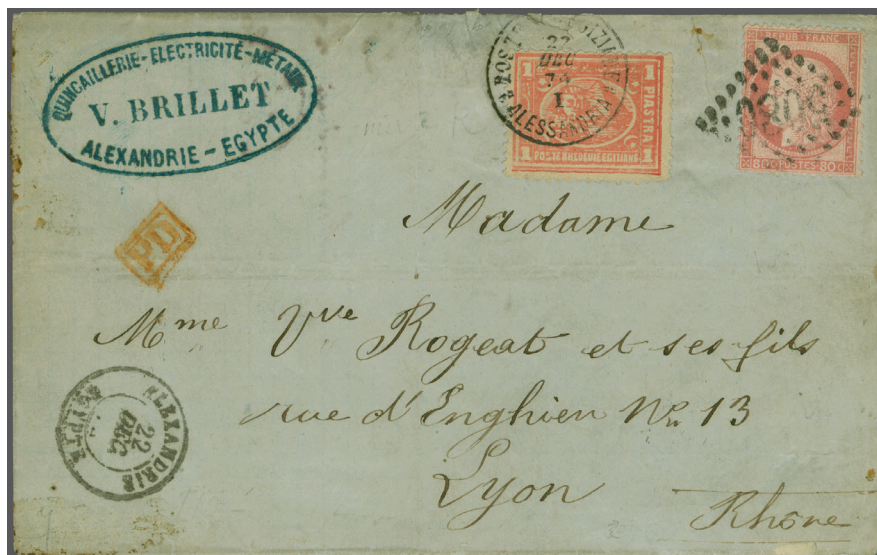 QUINCAILLERIE-ELECTRICITÉ-MÉTAUX
V. BRILLET
ALEXANDRIE - EGYPTE
22
DEC
I
ALESSANDRIA
1 PIASTRA 1
1 1
REPUB. FRANC.
80c POSTES 80c
PD
Madame
Mme Vve Rogeat et ses fils
rue d'Enghien No. 13
Lyon
Rhône
ALEXANDRIE
22
DEC
EGYPTE